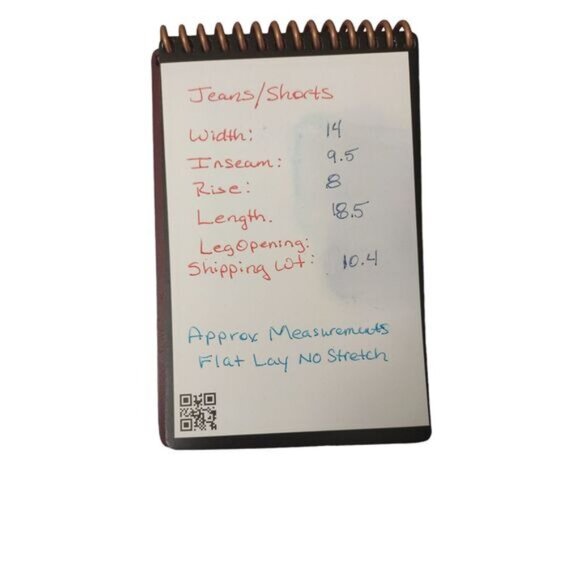 Jeans/Shorts
Width: 14
Inseam: 9.5
Rise: 8
Length. 18.5
Leg Opening:
Shipping Wt: 10.4
Approx Measurements
Flat Lay No Stretch